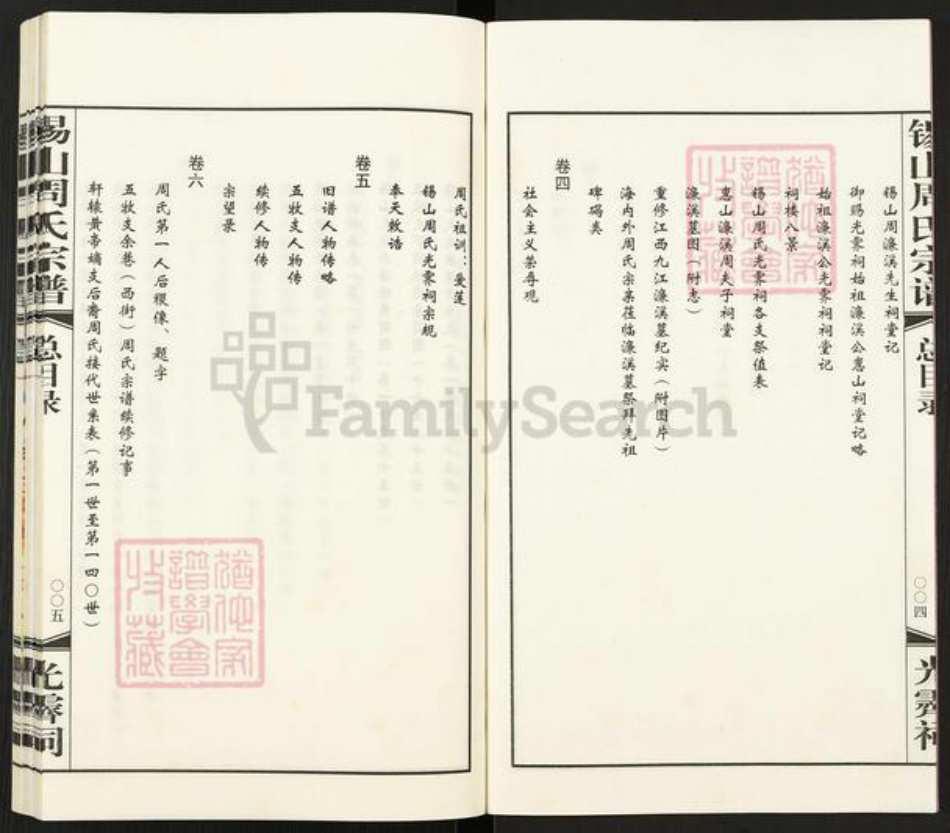 锡山周氏宗谱
总目录
〇〇四
光霁祠
锡山周濂溪先生祠堂记
御赐光霁祠始祖濂溪公惠山祠堂记略
始祖濂溪公光霁祠祠堂记
祠楼八景
锡山周氏光霁祠各支祭值表
惠山濂溪周夫子祠堂
濂溪墓图（附志）
重修江西九江濂溪墓纪实（附图片）
海内外周氏宗亲莅临濂溪墓祭拜先祖
碑碣类
卷四
社会主义荣辱观
周氏祖训：爱莲
锡山周氏光霁祠宗规
奉天敕诰
卷五
旧谱人物传略
五牧支人物传
续修人物传
宗望录
卷六
周氏第一人后稷像、题字
五牧支余巷（西街）周氏宗谱续修记事
轩辕黄帝嫡支后裔周氏接代世系表（第一世至第一四〇世）
锡山周氏宗谱
总目录
〇〇五
光霁祠
FamilySearch